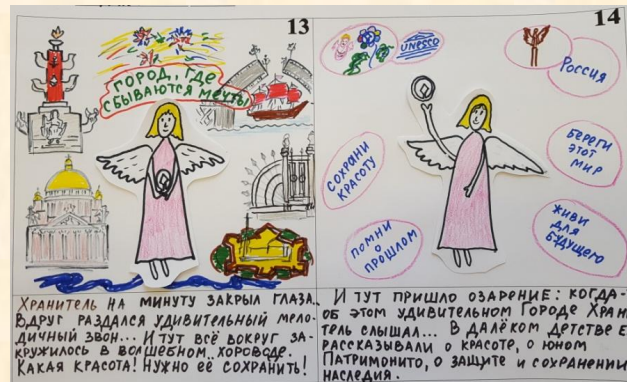 13
ГОРОД, ГДЕ
СБЫВАЮТСЯ МЕЧТЫ
ХРАНИТЕЛЬ НА МИНУТУ ЗАКРЫЛ ГЛАЗА..
ВДРУГ РАЗДАЛСЯ УДИВИТЕЛЬНЫЙ МЕЛО-
ДИЧНЫЙ ЗВОН... И ТУТ ВСЁ ВОКРУГ ЗА-
КРУЖИЛОСЬ В ВОЛШЕБНОМ ХОРОВОДЕ.
КАКАЯ КРАСОТА! НУЖНО ЕЁ СОХРАНИТЬ!
14
UNESCO
РОССИЯ
СОХРАНИ
КРАСОТУ
БЕРЕГИ
ЭТОТ
МИР
ПОМНИ
О
ПРОШЛОМ
ЖИВИ
ДЛЯ
БУДУЩЕГО
И ТУТ ПРИШЛО ОЗАРЕНИЕ: КОГДА-
ОБ ЭТОМ УДИВИТЕЛЬНОМ ГОРОДЕ ХРАН
ТЕЛЬ СЛЫШАЛ... В ДАЛЁКОМ ДЕТСТВЕ Е
РАССКАЗЫВАЛИ О КРАСОТЕ, О ЮНОМ
ПАТРИМОНИТО, О ЗАЩИТЕ И СОХРАНЕНИИ
НАСЛЕДИЯ.